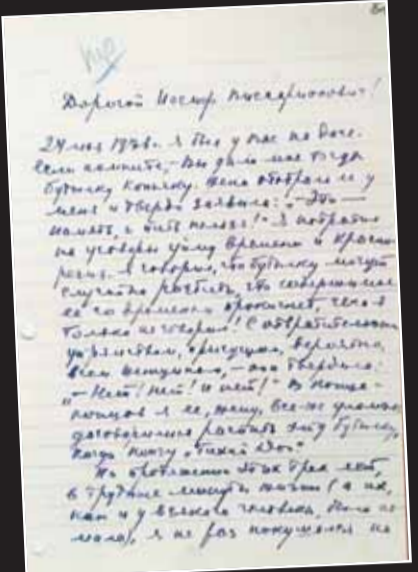 Дорогой Иосиф Виссарионович!
24 мая 1936г. я был у Вас на даче.
Если помните, – Вы дали мне тогда
бутылку коньяку. Жена отобрала ее у
меня и твердо заявила: „– Это –
память, и пить нельзя!“ Я потратил
на уговоры уйму времени и красно-
речия. Я говорил, что бутылку могут
случайно разбить, что содержимое
ее со временем прокиснет, чего я
только не говорил! С отвратительным
упрямством, присущим, вероятно,
всем женщинам, – она твердила:
„– Нет! Нет! и нет!“ В конце-
концов я ее, жену, все-ж уломал:
договорились распить эту бутылку,
когда кончу „Тихий Дон“.
На протяжении этих трех лет,
в трудные минуты жизни (а их,
как и у всякого человека, было не
мало), я не раз покушался на